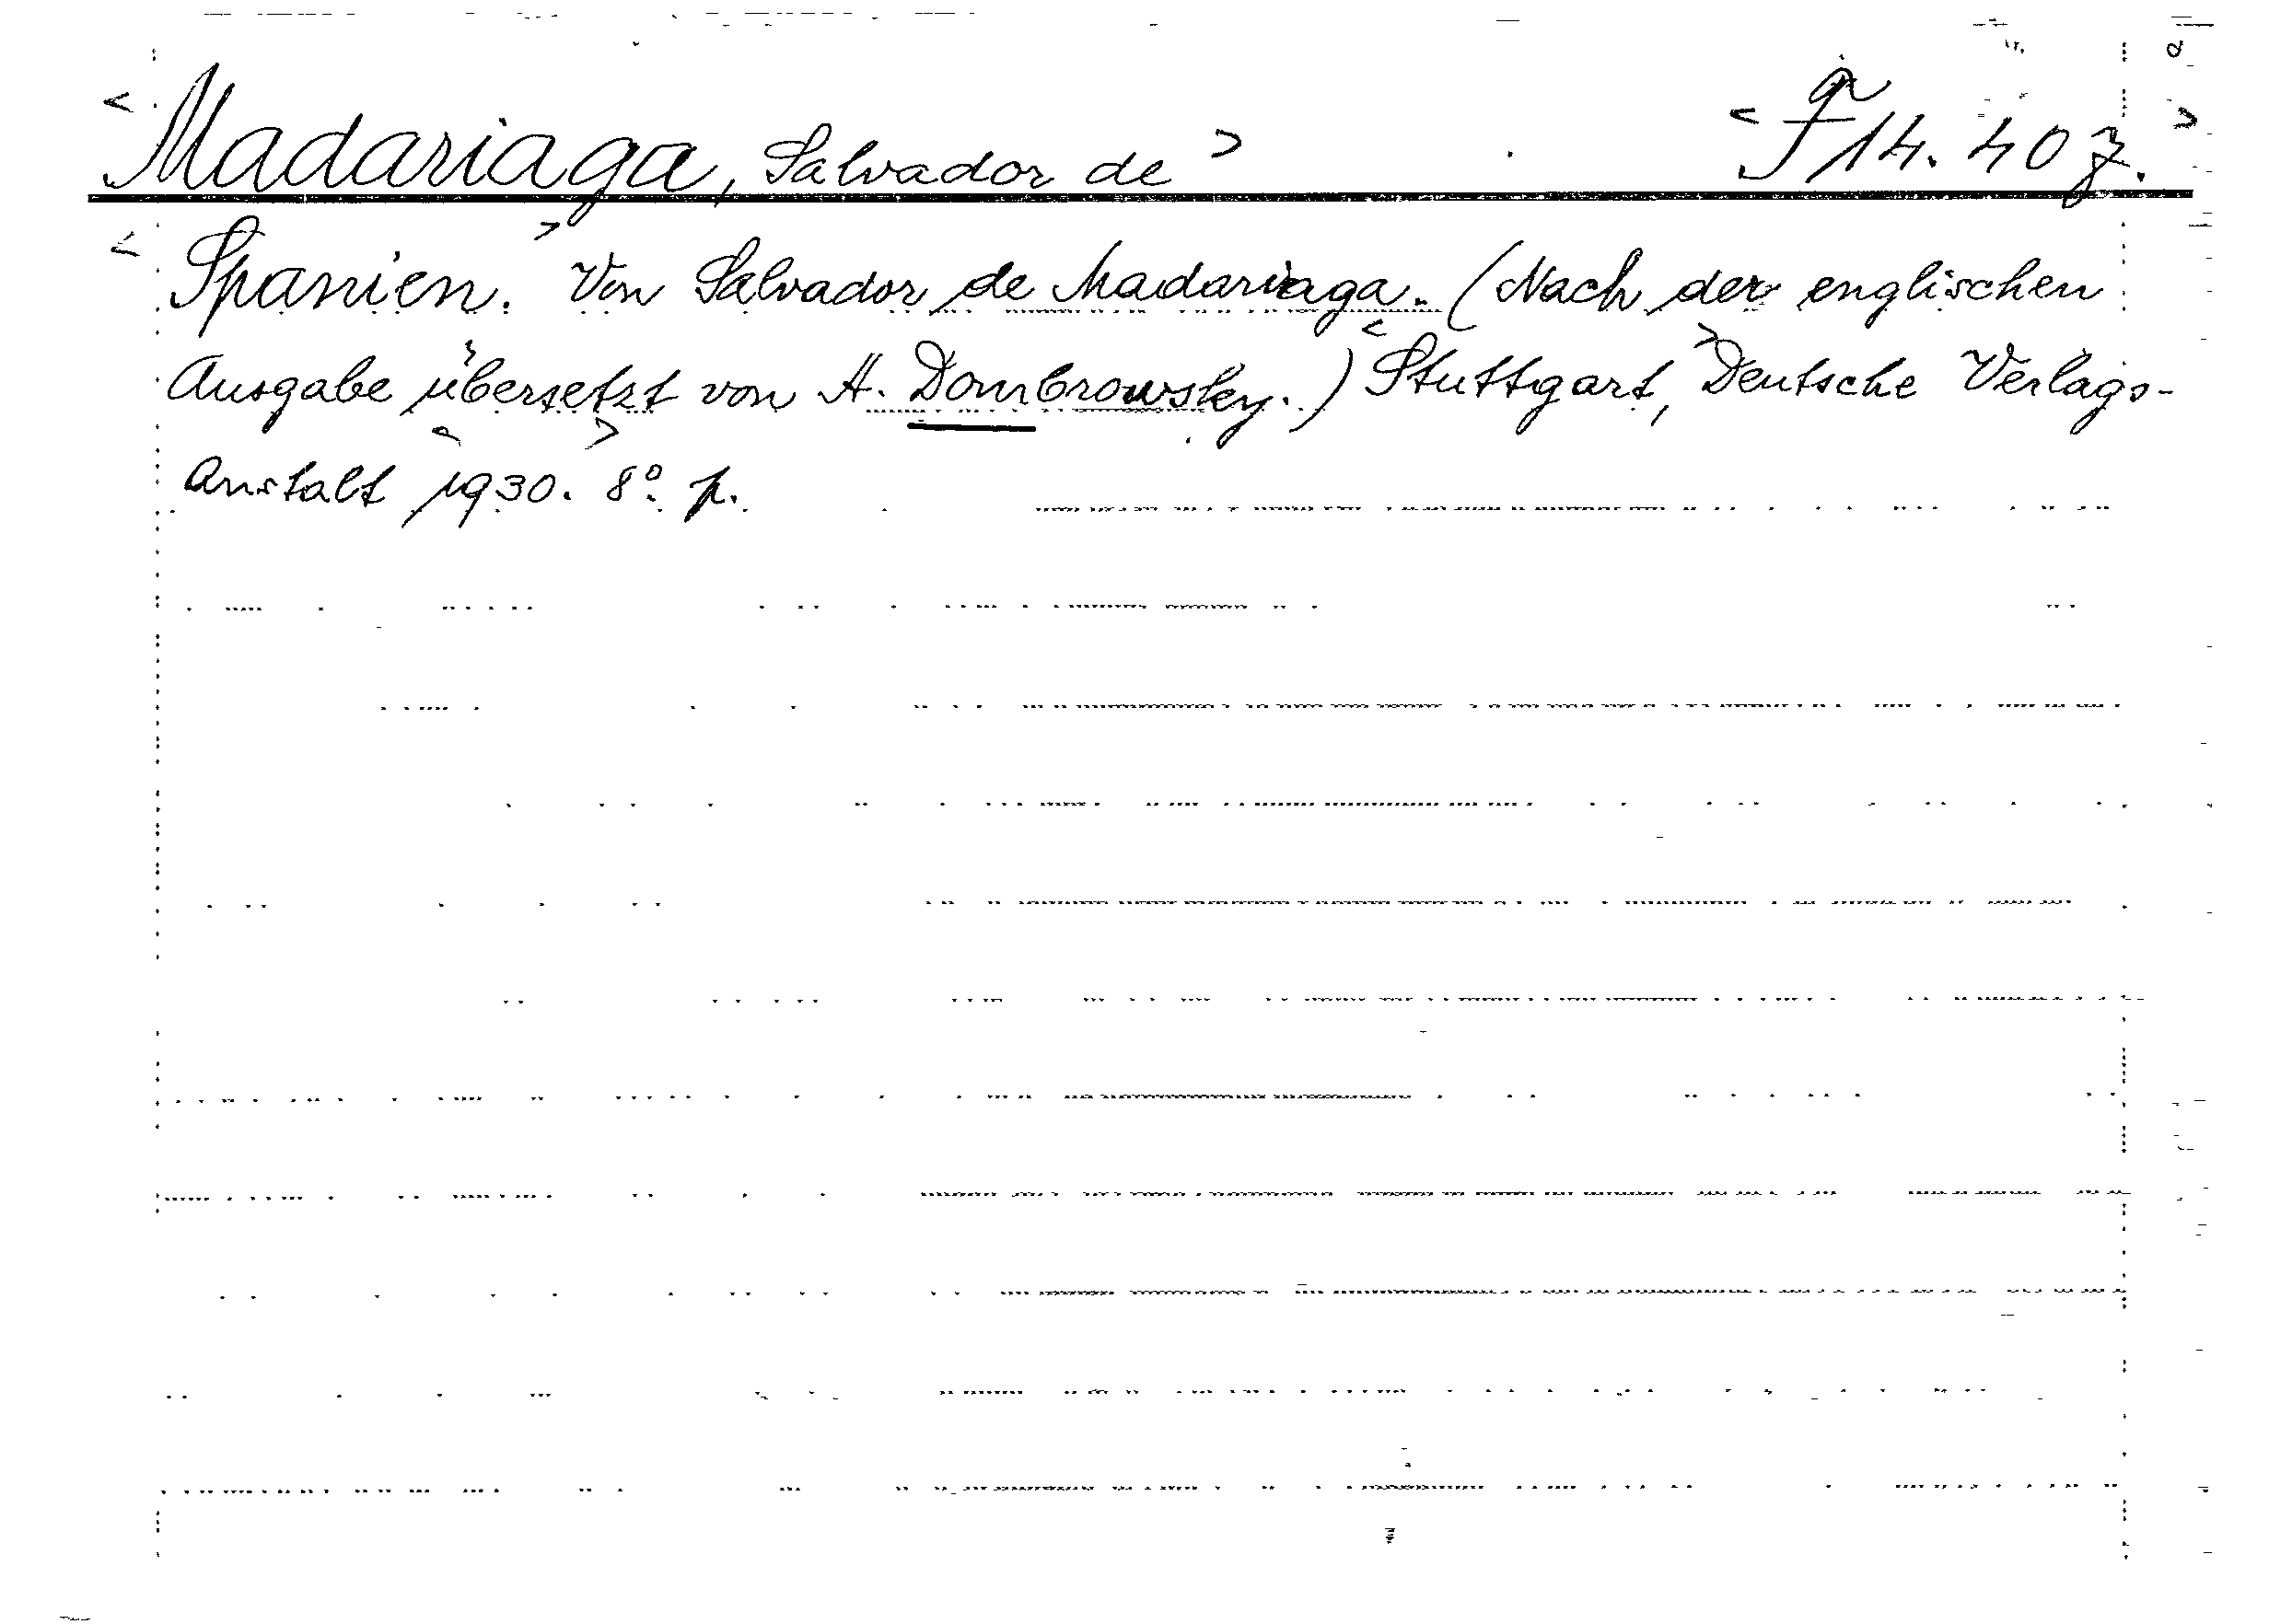 <Madariaga, Salvador de> <F 14.407.>
<Spanien.> Von Salvador de Madariaga. (Nach der englischen
Ausgabe übersetzt von A. Dombrowsky.) <Stuttgart,> Deutsche Verlags-
Anstalt <1930.> 8° p.